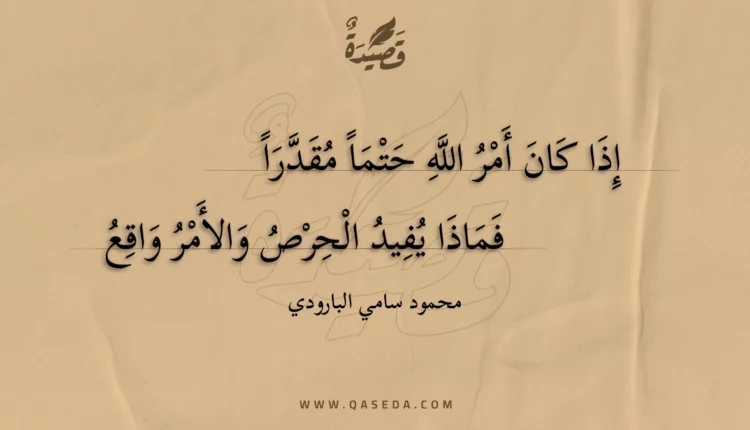 قَصِيدَةٌ
إِذَا كَانَ أَمْرُ اللَّهِ حَتْمَاً مُقَدَّرَاً
فَمَاذَا يُفِيدُ الْحِرْصُ وَالأَمْرُ وَاقِعُ
محمود سامي البارودي
WWW.QASEDA.COM